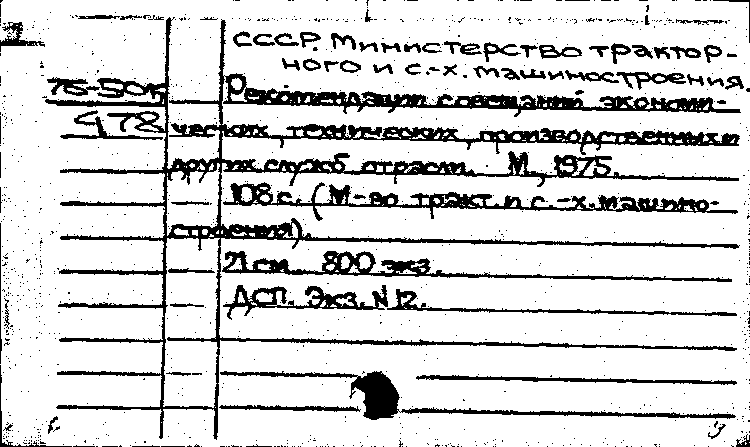 СССР. Министерство трактор-
ного и с.-х. машиностроения.
75-50к
478
Рекомендации совещаний экономи-
ческих, технических, производственных и
других служб отрасли. М., 1975.
108 с. (М-во тракт. и с.-х. машино-
строения).
21 см. 800 экз.
ДСП. Экз. N 12.